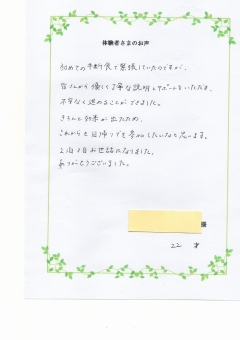 体験者さまのお声
初めての半断食で緊張していたのですが、
皆さんから優しく丁寧な説明とサポートをいただき、
不安なく進めることができました。
きちんと効果が出たため、
これからも日帰りでも参加したいなと思います。
2泊3日お世話になりました。
ありがとうございました。
様
22才